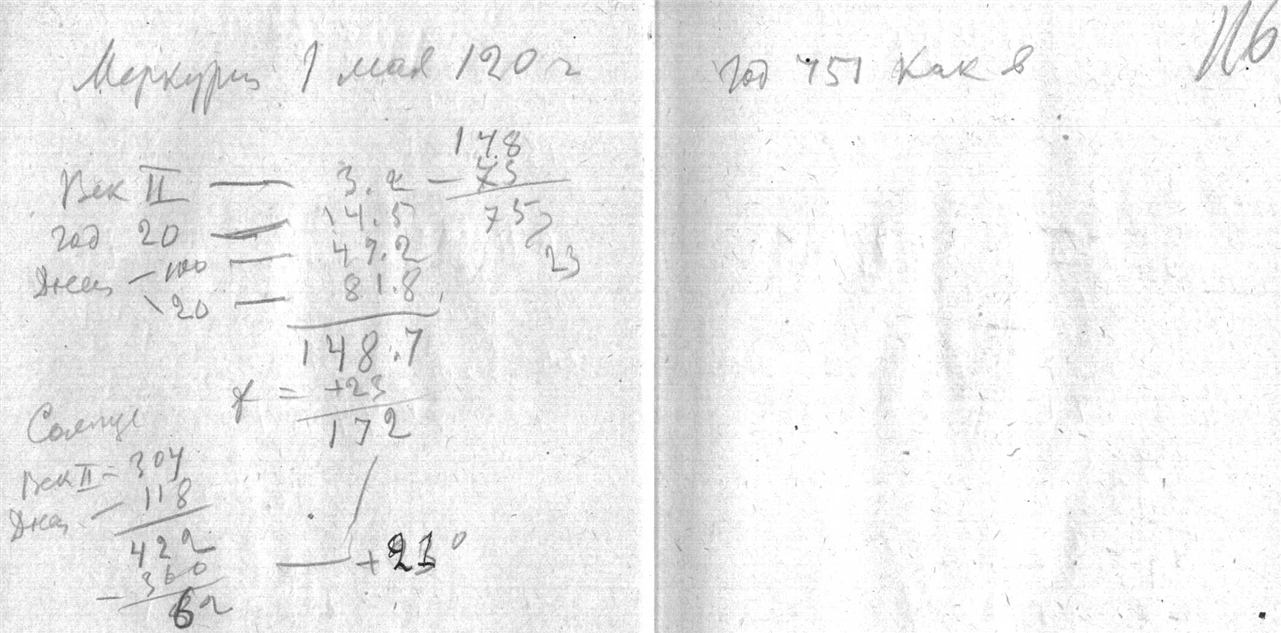 Меркурий 1 мая 120 г
148
Век II — 3.2 — 73
75
год 20 — 14.5
23
Дней — 100 — 47.2
20 — 81.8
148.7
= +23
172
Солнце
Век II = 304
Дней — 118
422
— 360
62
— +23°
год 151 Как в
116